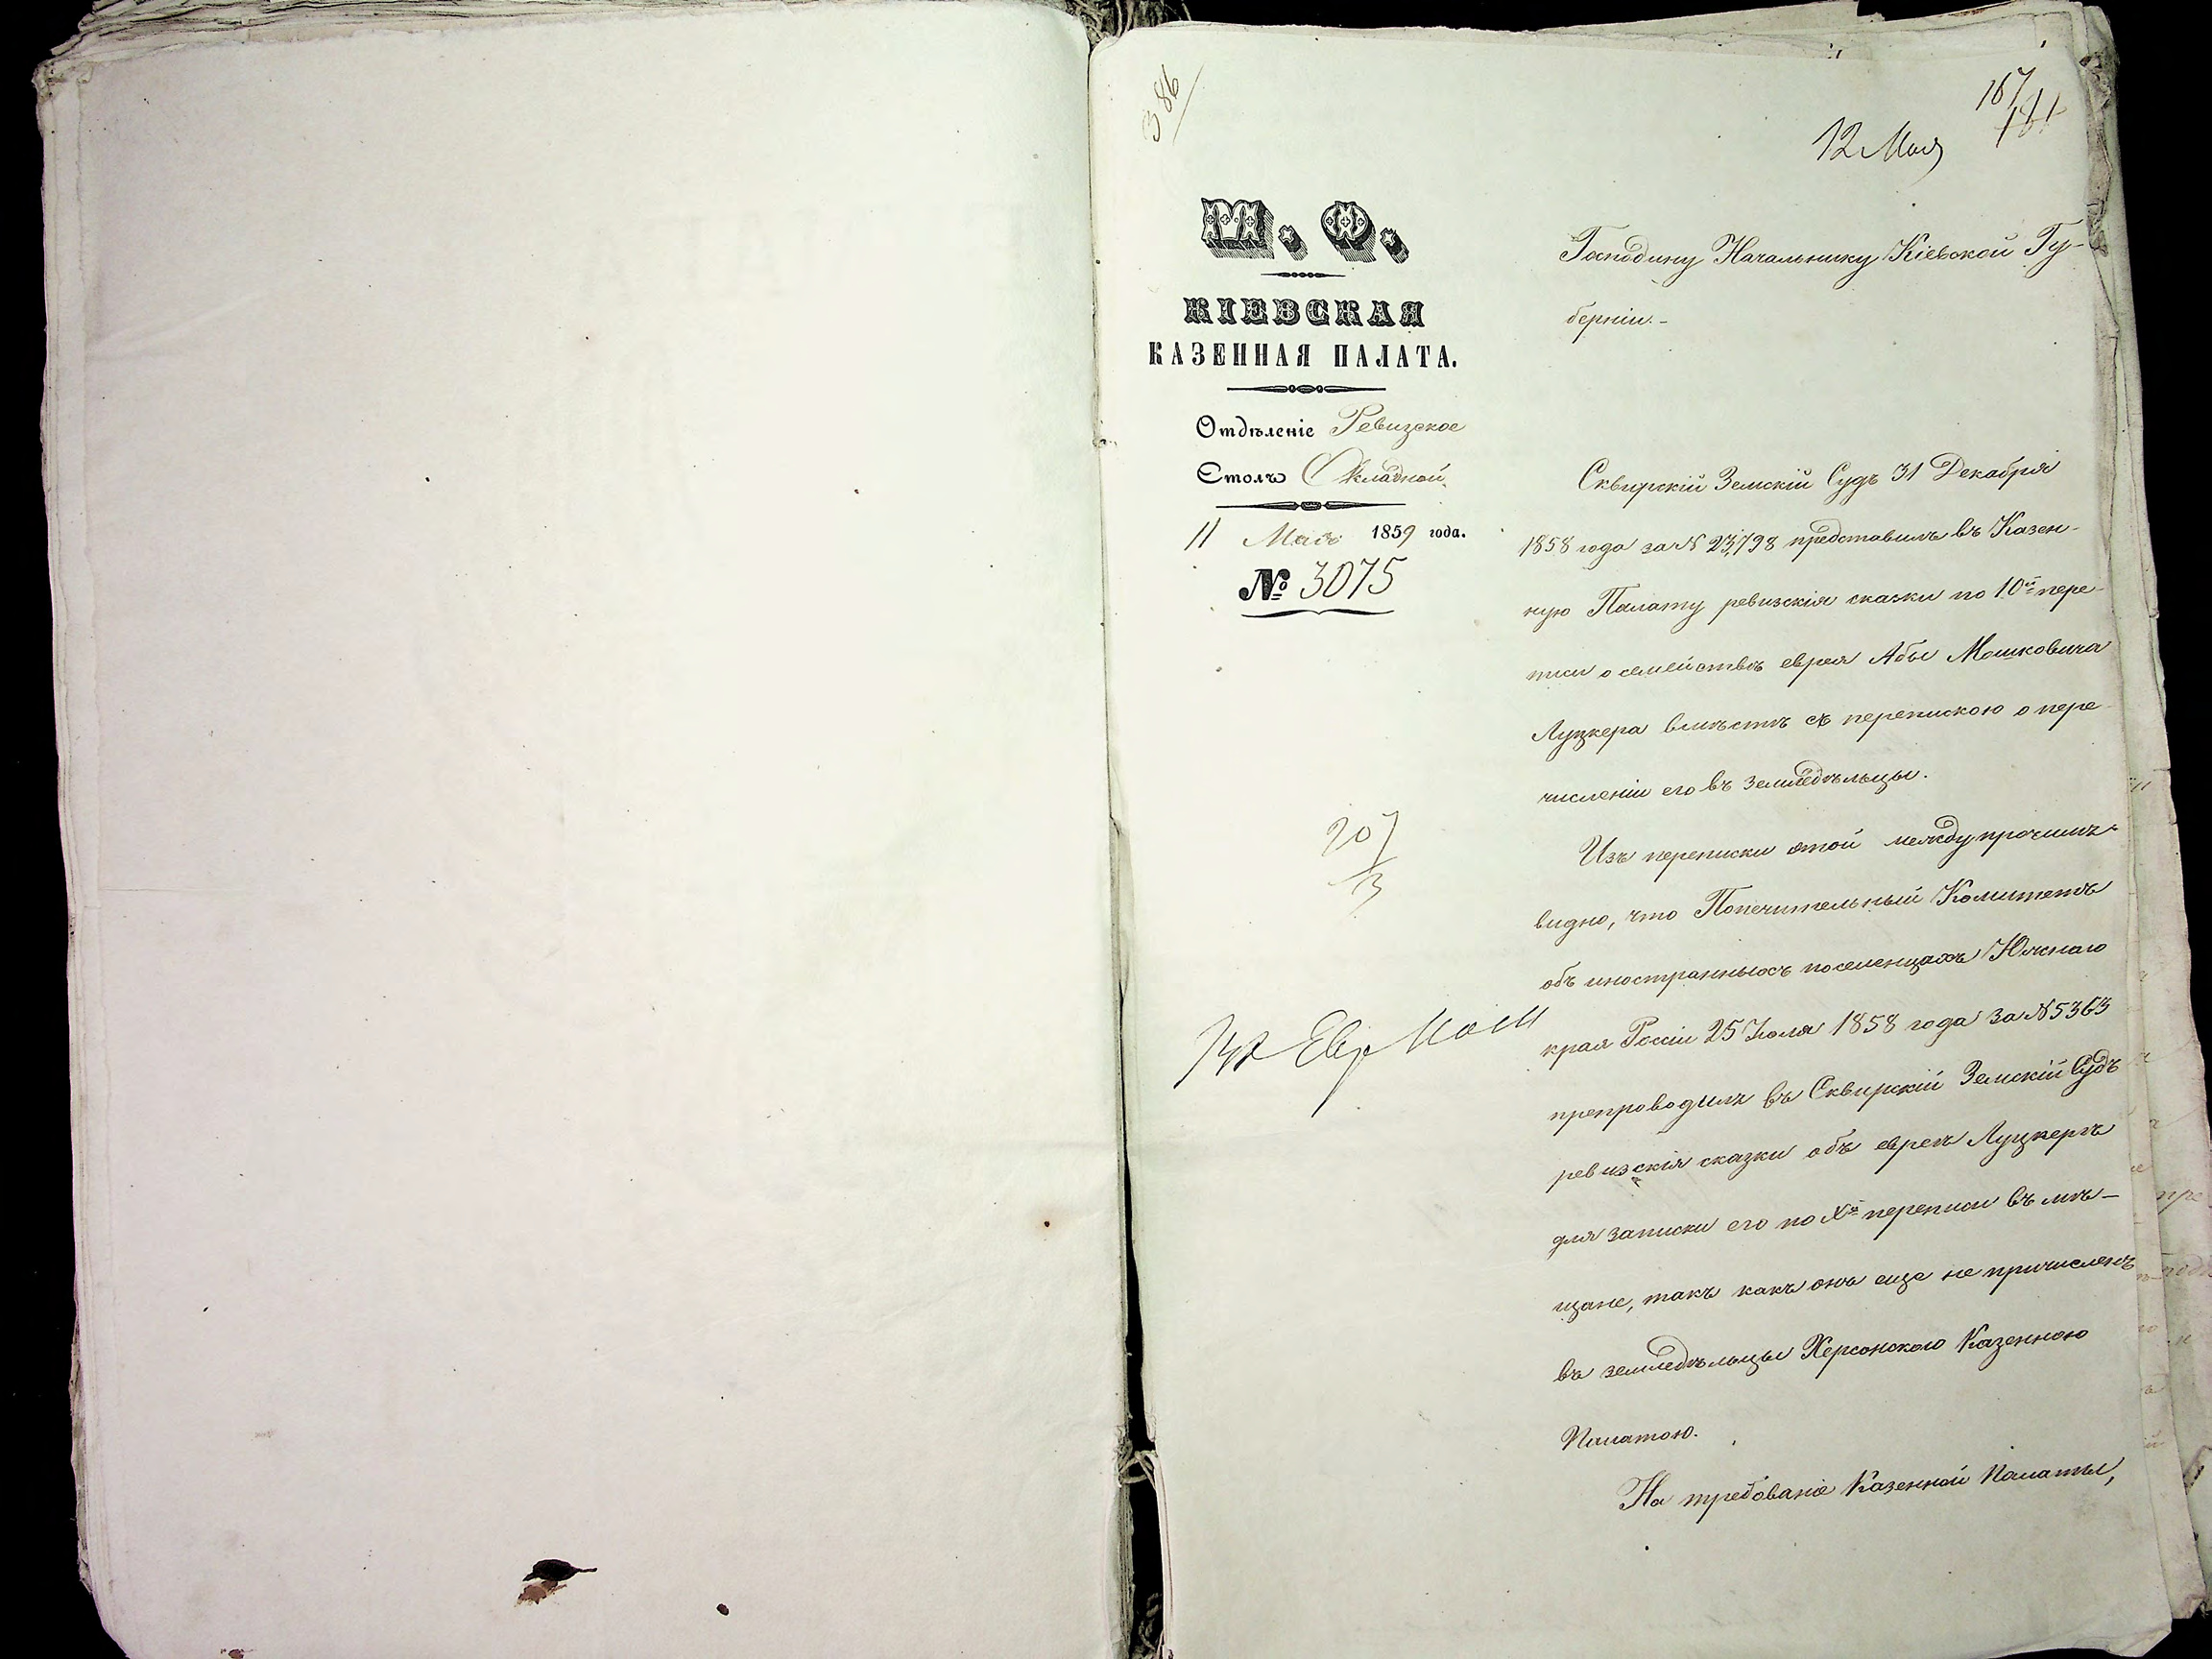 386
167
181
12 Мая
М. Ф.
КІЕВСКАЯ
КАЗЕННАЯ ПАЛАТА.
Отдѣленіе Ревизское
Столъ Окладной
11 Мая 1859 года.
№ 3075
207
Господину Начальнику Кіевской Гу-
берніи.-
Сквирскій Земскій Судъ 31 Декабря
1858 года за № 23,798 представилъ въ Казен-
ную Палату ревизскія сказки по 10й пере-
писи о семействѣ еврея Абы Мошковича
Луцкера вмѣстѣ съ перепискою о пере-
численіи его въ земледѣльцы.
Изъ переписки этой между прочимъ
видно, что Попечительный Комитетъ
объ иностранныхъ поселенцахъ Южнаго
края Россіи 25 Іюля 1858 года за № 5363
препроводилъ въ Сквирскій Земскій Судъ
ревизскія сказки объ евреѣ Луцкерѣ
для записки его по Xй переписи въ мѣ-
щане, такъ какъ онъ еще не причисленъ
въ земледѣльцы Херсонскою Казенною
Палатою.
На требованіе Казенной Палаты,